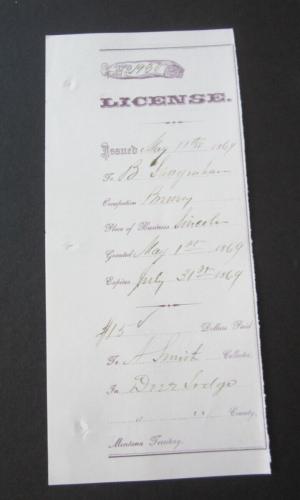 No 1930
LICENSE.
Issued May 11th 1869
To B
Occupation Brewery
Place of Business Lincoln
Granted May 1st 1869
Expires July 31st 1869
$15 Dollars Paid
To A Smith Collector
In Deer Lodge
County,
Montana Territory.